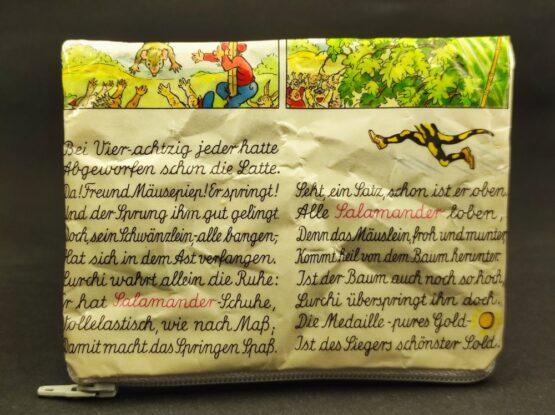 Bei Vier-achtzig jeder hatte
Abgeworfen schon die Latte.
Da! Freund Mäusepiep! Er springt!
Und der Sprung ihm gut gelingt.
Doch, sein Schwänzlein,-alle bangen,-
Hat sich in dem Ast verfangen.
Lurchi wahrt allein die Ruhe:
Er hat Salamander-Schuhe,
Vollelastisch, wie nach Maß;
Damit macht das Springen Spaß.
Seht, ein Satz, schon ist er oben.
Alle Salamander loben,
Denn das Mäuslein, froh und munter,
Kommt heil von dem Baum herunter.
Ist der Baum auch noch so hoch,
Lurchi überspringt ihn doch.
Die Medaille - pures Gold -
Ist des Siegers schönster Sold.